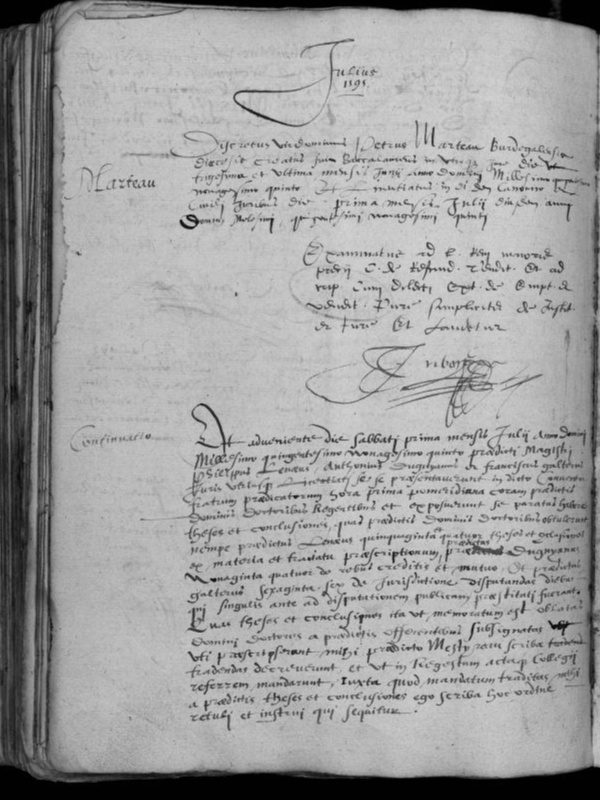 Julius
1595
Discretus vir dominus Petrus Marteau Burdegalensis
diocesis creatus fuit Baccalaureus in utroq Jure die
trigesima et ultima mensis Junii anno domini Millesimo
nonagesimo quinto Et Licentiatus in
Civili Juribus die prima mensis Julii eiusdem anni
Domini Millesimi quingentesimi nonagesimi quinti
Marteau
Examinatus ad L.
C. de Rescind. Vendit. Et ad
Cum dilecti Extr. de Empt. et
vendit. Pure simpliciter de Justit.
et Jure Et Laudetur
Continuatio
At adveniente die sabbati prima mensis Julii Anno domini
Millesimo quingentesimo nonagesimo quinto prædicti Magistri
Philippus Leneux, Anthonius Dugnyanus et franciscus galterus
Juris utriusq Licentiati sese præsentaverunt in dicto Conventu
fratrum prædicatorum hora prima pomeridiana coram prædictis
dominis Doctoribus Regentibus et exposuerunt se paratas habere
theses et conclusiones, quas prædictis Dominis Doctoribus obtulerunt
nempe prædictus Leneux quinquaginta quatuor theses et conclusiones
ex materia et tractatu præscriptionum, prædictus Dugnyanus
Nonaginta quatuor de rebus creditis et mutuo, Et prædictus
galterus sexaginta sex de Jurisdictione disputandas diebus
qui singulis ante ad disputationem publicam præstituti fuerant.
Quas theses et conclusiones ita ut memoratum est oblatas
domini doctores a prædictis offerentibus subsignatas
uti præscripserant, mihi prædicto Mesty scriba
tradendas decreverunt, et ut in Regestum actaq Collegii
referrem mandarunt, Juxta quod mandatum traditas mihi
a prædictis theses et conclusiones ego scriba hoc ordine
retuli et inserui qui sequitur.